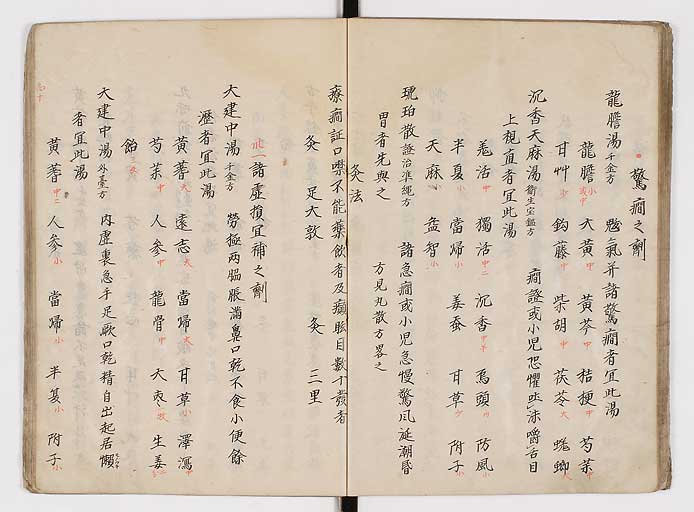 驚癇之劑
龍膽湯 千金方 魃氣并諸驚癇者宜此湯
龍膽 小或中 大黃 中 黃芩 中 桔梗 中 芍藥 中
甘艸 少 鈎藤 中 柴胡 中 茯苓 大 蜣螂 八
沉香天麻湯 衛生宝鑑方 癇證或小児恐懼 嚼舌目
上視直者宜此湯
羗活 中 獨活 中二 沉香 中半 烏頭 防風 小
半夏 小 當帰 小 姜蚕 甘草 少 附子 小
天麻 小 益智 小
琥珀散 證治凖繩方 諸急癇或小児急慢驚风涎潮昏
冐者先與之 方見丸散方畧之
灸法
療癇証口噤不能藥飲者及癲眩目數十發者
灸 足大敦 灸 三里
諸虛損宜補之劑
大建中湯 千金方 勞極两脇脹滿鼻口乾不食小便餘
瀝者宜此湯
黃蓍 大 遠志 大 當帰 大 甘草 小 澤瀉 中
芍藥 中 人参 中 龍骨 中 大枣 二枚 生姜 二
飴
大建中湯 外臺方 内虛裏急手足厥口乾精自出起居懶
者宜此湯
黃蓍 中二 人参 小 當帰 小 半夏 小 附子 小